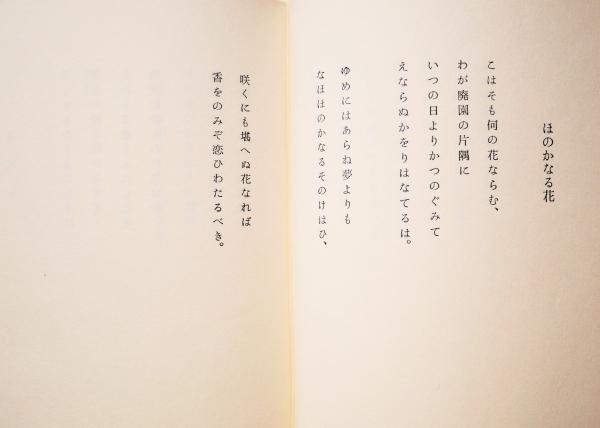 ほのかなる花
こはそも何の花ならむ、
わが廃園の片隅に
いつの日よりかつのぐみて
えならぬかをりはなてるは。
ゆめにはあらね夢よりも
なほほのかなるそのけはひ、
咲くにも堪へぬ花なれば
香をのみぞ恋ひわたるべき。